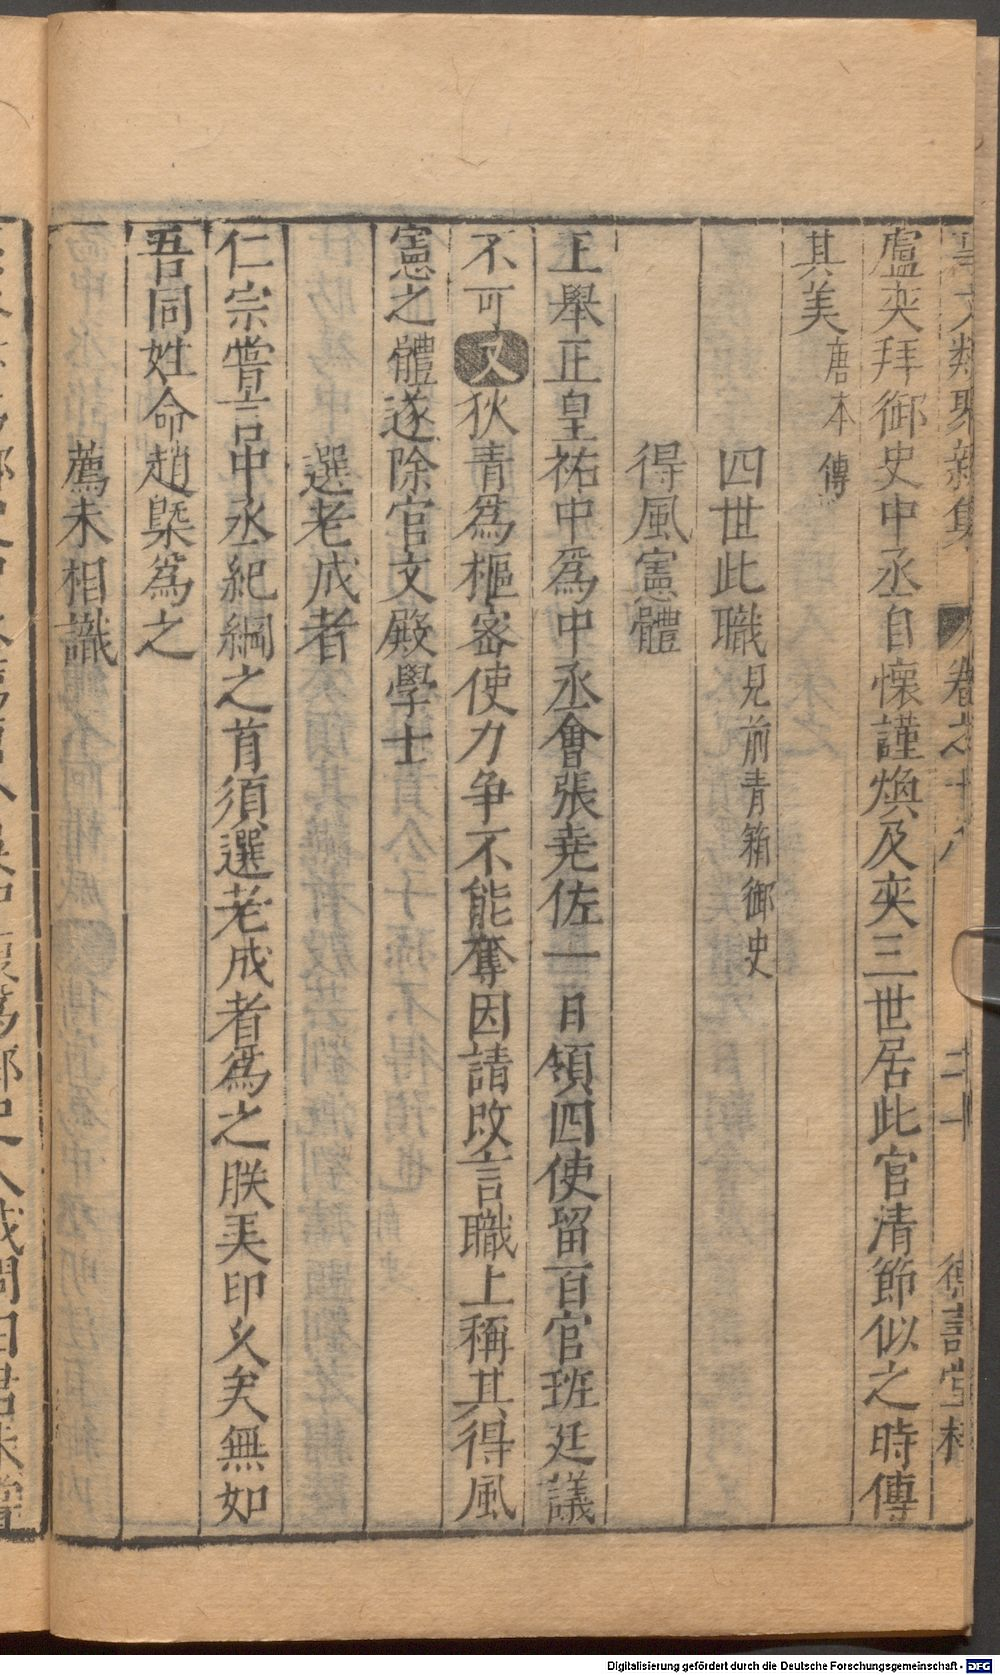 事文類聚新集 卷之十八 二十 德壽堂梓
盧奕拜御史中丞自懷謹煥及奕三世居此官清節似之時傳
其美唐本傳
四世此職見前青箱御史
得風憲體
王舉正皇祐中爲中丞會張堯佐一日領四使留百官班廷議
不可又狄青爲樞密使力争不能奪因請改言職上稱其得風
憲之體遂除官文殿學士
選老成者
仁宗嘗言中丞紀綱之首須選老成者爲之朕美印乆矣無如
吾同姓命趙槩爲之
薦未相識
Digitalisierung gefördert durch die Deutsche Forschungsgemeinschaft - DFG